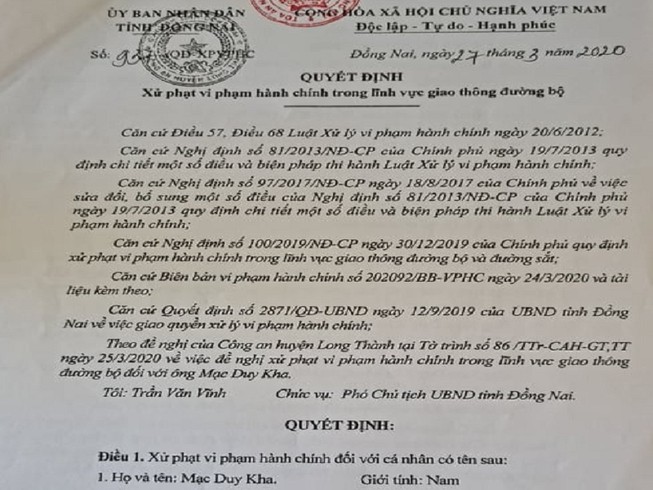 ỦY BAN NHÂN DÂN
TỈNH ĐỒNG NAI
CỘNG HÒA XÃ HỘI CHỦ NGHĨA VIỆT NAM
Độc lập - Tự do - Hạnh phúc
Số: /QĐ-XPVPHC
Đồng Nai, ngày 27 tháng 3 năm 2020
QUYẾT ĐỊNH
Xử phạt vi phạm hành chính trong lĩnh vực giao thông đường bộ
Căn cứ Điều 57, Điều 68 Luật Xử lý vi phạm hành chính ngày 20/6/2012;
Căn cứ Nghị định số 81/2013/NĐ-CP của Chính phủ ngày 19/7/2013 quy
định chi tiết một số điều và biện pháp thi hành Luật Xử lý vi phạm hành chính;
Căn cứ Nghị định số 97/2017/NĐ-CP ngày 18/8/2017 của Chính phủ về việc
sửa đổi, bổ sung một số điều của Nghị định số 81/2013/NĐ-CP của Chính phủ
ngày 19/7/2013 quy định chi tiết một số điều và biện pháp thi hành Luật Xử lý vi
phạm hành chính;
Căn cứ Nghị định số 100/2019/NĐ-CP ngày 30/12/2019 của Chính phủ quy định
xử phạt vi phạm hành chính trong lĩnh vực giao thông đường bộ và đường sắt;
Căn cứ Biên bản vi phạm hành chính số 202092/BB-VPHC ngày 24/3/2020 và tài
liệu kèm theo;
Căn cứ Quyết định số 2871/QĐ-UBND ngày 12/9/2019 của UBND tỉnh Đồng
Nai về việc giao quyền xử lý vi phạm hành chính;
Theo đề nghị của Công an huyện Long Thành tại Tờ trình số 86 /TTr-CAH-GT,TT
ngày 25/3/2020 về việc đề nghị xử phạt vi phạm hành chính trong lĩnh vực giao thông
đường bộ đối với ông Mạc Duy Kha.
Tôi: Trần Văn Vĩnh Chức vụ: Phó Chủ tịch UBND tỉnh Đồng Nai.
QUYẾT ĐỊNH:
Điều 1. Xử phạt vi phạm hành chính đối với cá nhân có tên sau:
1. Họ và tên: Mạc Duy Kha. Giới tính: Nam